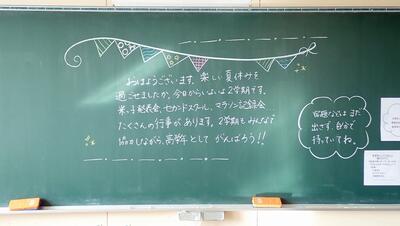 おはようございます。楽しい夏休みを
過ごせましたか。今日からいよいよ2学期です。
米っ子発表会、セカンドスクール、マラソン記録会…
たくさんの行事があります。2学期もみんなで
協力しながら、高学年として がんばろう!!
宿題などはまだ
出さず、自分で
持っていてね。